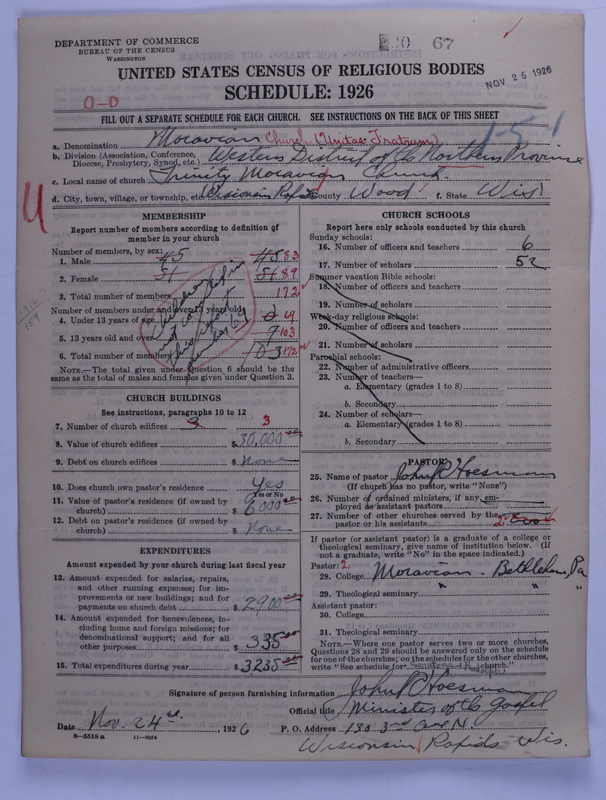 DEPARTMENT OF COMMERCE
BUREAU OF THE CENSUS
WASHINGTON
67
NOV 26 1926
UNITED STATES CENSUS OF RELIGIOUS BODIES
SCHEDULE: 1926
0-0
FILL OUT A SEPARATE SCHEDULE FOR EACH CHURCH. SEE INSTRUCTIONS ON THE BACK OF THIS SHEET
1-5-1
a. Denomination Moravian Church (Unitas Fratrum)
b. Division (Association, Conference, Diocese, Presbytery, Synod, etc.) Western District of the Northern Province
c. Local name of church Trinity Moravian Church
d. City, town, village, or township, etc. Wisconsin Rapids County Wood f. State Wis.
4
MEMBERSHIP
Report number of members according to definition of
member in your church
Number of members, by sex:
1. Male 45 45 83
2. Female 51 51 89
3. Total number of members 172
Number of members under and over 13 years old:
4. Under 13 years of age 0 69
5. 13 years old and over 9 103
6. Total number of members 103 172
NOTE.—The total given under Question 6 should be the
same as the total of males and females given under Question 3.
CHURCH BUILDINGS
See instructions, paragraphs 10 to 12
7. Number of church edifices 3 3
8. Value of church edifices $ 30,000 00
9. Debt on church edifices $ None
10. Does church own pastor's residence? Yes
Yes or No
11. Value of pastor's residence (if owned by
church) $ 6000 00
12. Debt on pastor's residence (if owned by
church) $ None
EXPENDITURES
Amount expended by your church during last fiscal year
13. Amount expended for salaries, repairs,
and other running expenses; for im-
provements or new buildings; and for
payments on church debt $ 2900 00
14. Amount expended for benevolences, in-
cluding home and foreign missions; for
denominational support; and for all
other purposes $ 335 00
15. Total expenditures during year $ 3235 00
CHURCH SCHOOLS
Report here only schools conducted by this church
Sunday schools:
16. Number of officers and teachers 6
17. Number of scholars 52
Summer vacation Bible schools:
18. Number of officers and teachers
19. Number of scholars
Week-day religious schools:
20. Number of officers and teachers
21. Number of scholars
Parochial schools:
22. Number of administrative officers
23. Number of teachers—
a. Elementary (grades 1 to 8)
b. Secondary
24. Number of scholars—
a. Elementary (grades 1 to 8)
b. Secondary
PASTOR
25. Name of pastor John P. Hoesman
(If church has no pastor, write "None")
26. Number of ordained ministers, if any, em-
ployed as assistant pastors
27. Number of other churches served by the
pastor or his assistants 2
If pastor (or assistant pastor) is a graduate of a college or
theological seminary, give name of institution below. (If
not a graduate, write "No" in the space indicated.)
Pastor: 2
28. College Moravian - Bethlehem, Pa
29. Theological seminary " " "
Assistant pastor:
30. College
31. Theological seminary
NOTE.—Where one pastor serves two or more churches,
Questions 28 and 29 should be answered only on the schedule
for one of the churches; on the schedules for the other churches,
write "See schedule for church."
Signature of person furnishing information John P. Hoesman
Official title Minister of the Gospel
Date Nov. 24 , 1926 P. O. Address 130 3rd Ave N.
8-5518 a 11-9054
Wisconsin Rapids Wis.